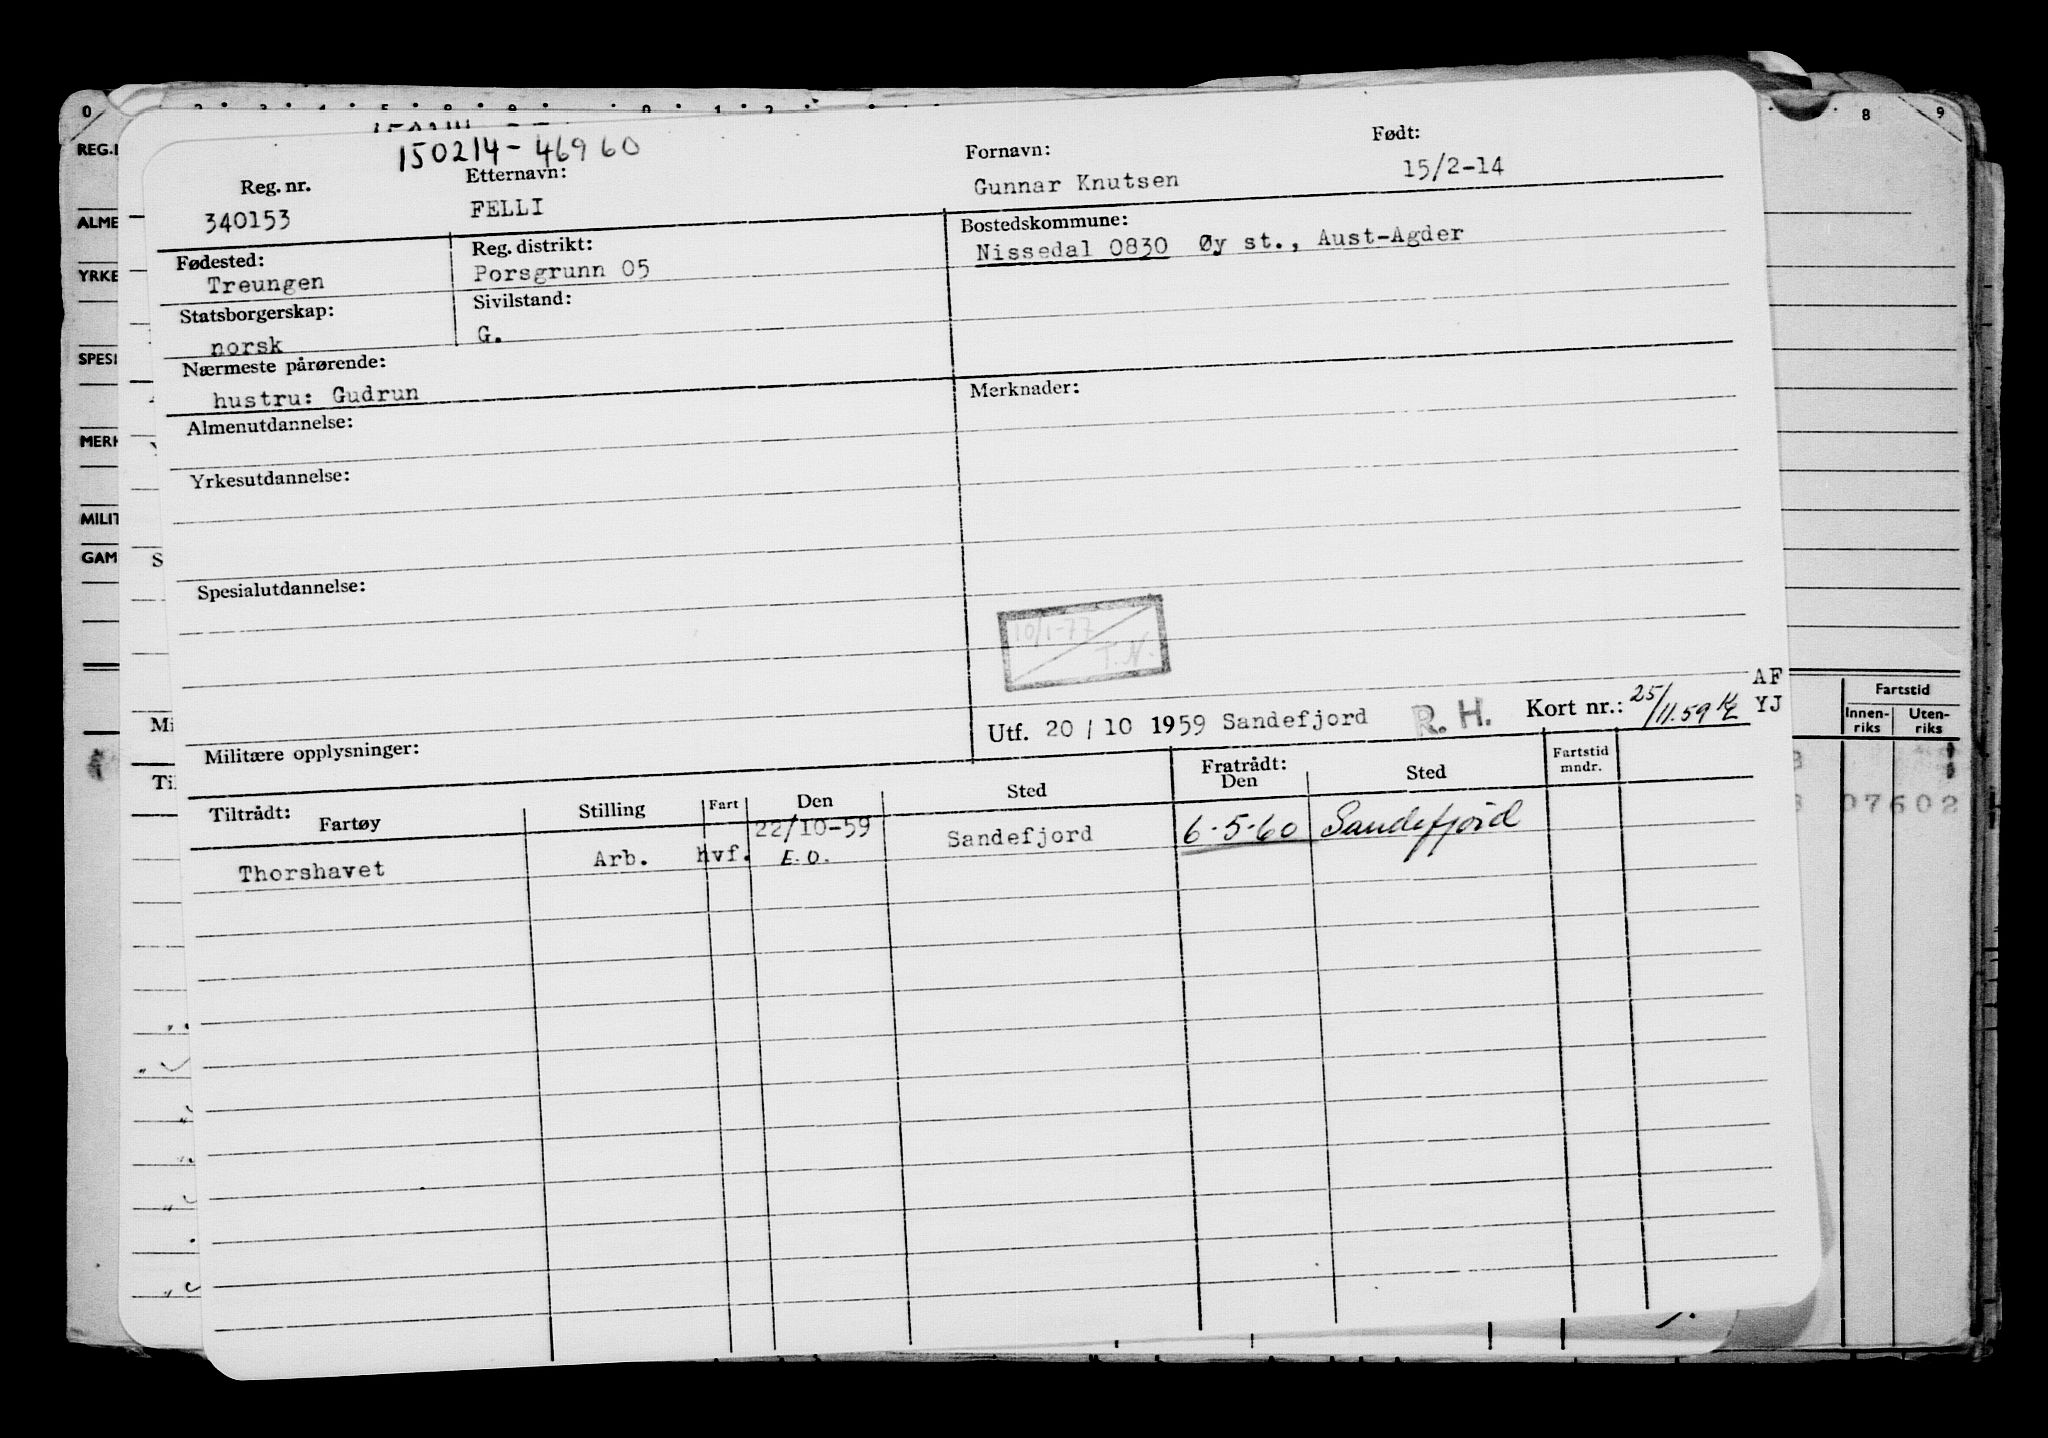 0 2 3 4 5 8 9 0 1 2 8 9
REG.
150214-46960
Reg. nr. Etternavn: Fornavn: Født:
340153 FELLI Gunnar Knutsen 15/2-14
ALME
Fødested: Reg. distrikt: Bostedskommune:
Treungen Porsgrunn 05 Nissedal 0830 Øy st., Aust-Agder
YRKE
Statsborgerskap: Sivilstand:
norsk G.
SPESI
Nærmeste pårørende:
hustru: Gudrun
Merknader:
Almenutdannelse:
MERK
Yrkesutdannelse:
MILIT
GAM S
Spesialutdannelse:
10/1-77
T.N.
AF
Utf. 20/10 1959 Sandefjord R. H. Kort nr.: 25/11.59 YJ
Fartstid
Innen- Uten-
riks riks
Mi
Militære opplysninger:
Til
Tiltrådt: Fratrådt:
Fartøy Stilling Fart Den Sted Den Sted Fartstid
mndr.
07602
22/10-59
Thorshavet Arb. hvf. E.O. Sandefjord 6-5-60 Sandefjord